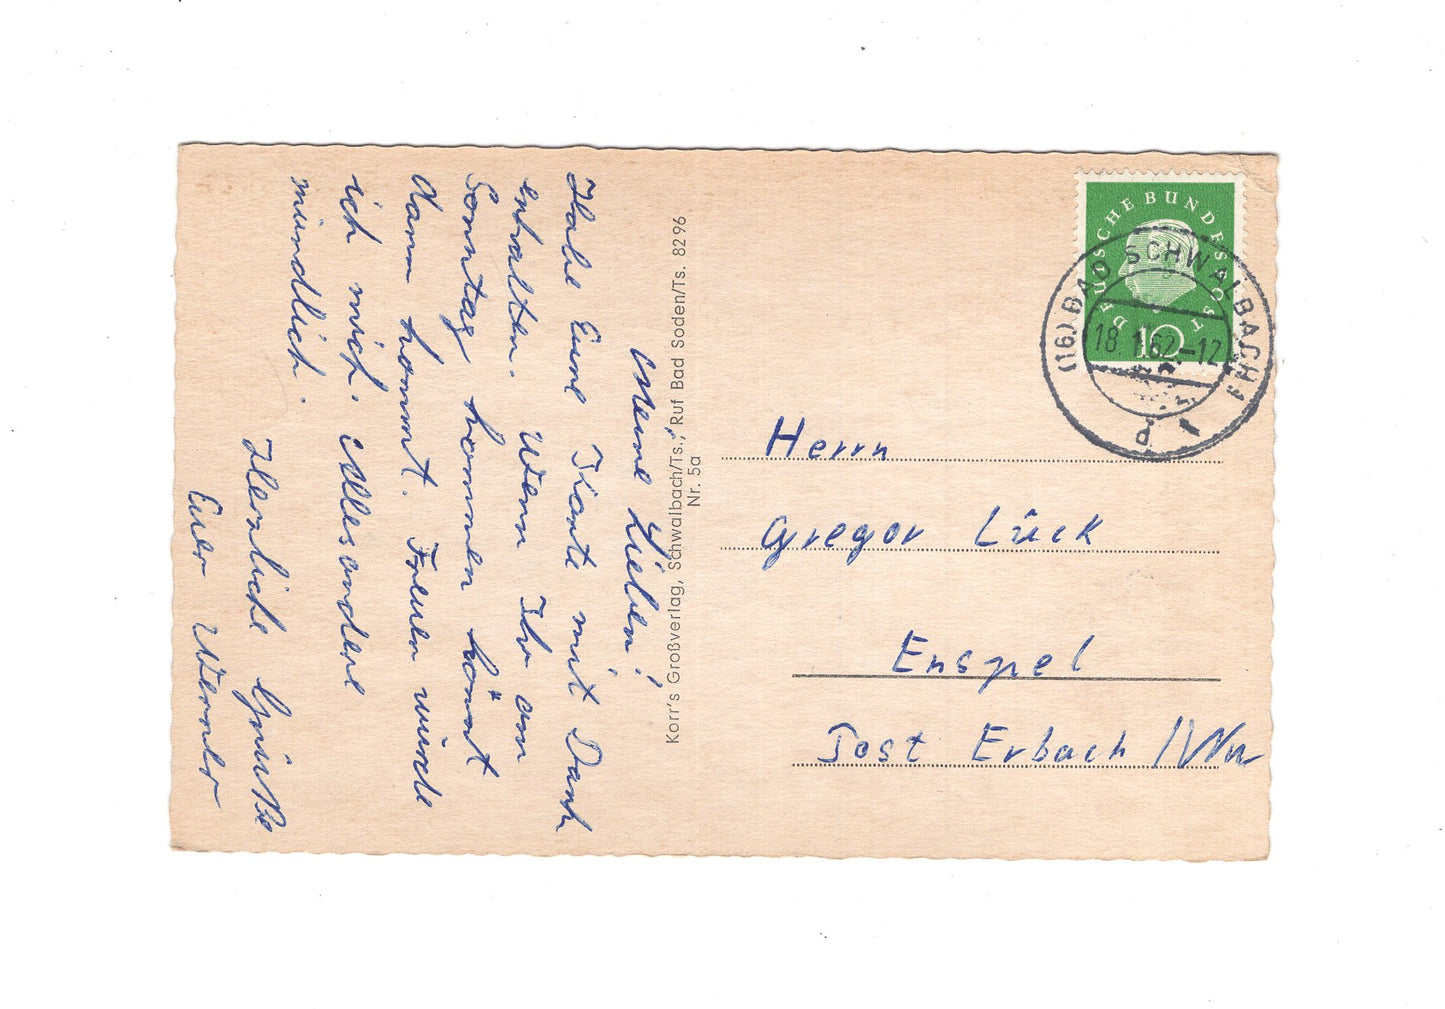 Meine Lieben!
Habe Eure Karte mit Dank
erhalten. Wenn Ihr am
Sonntag kommen könnt
dann kommt. Freuen würde
ich mich. Alles andere
mündlich.
Herzliche Grüße
Euer Werner
Korr's Großverlag, Schwalbach/Ts., Ruf Bad Soden/Ts. 8296
Nr. 5a
DEUTSCHE BUNDESPOST
10
(16) BAD SCHWALBACH 1
18.1.62.-12
d
Herrn
Gregor Lück
Enspel
Post Erbach /Ww